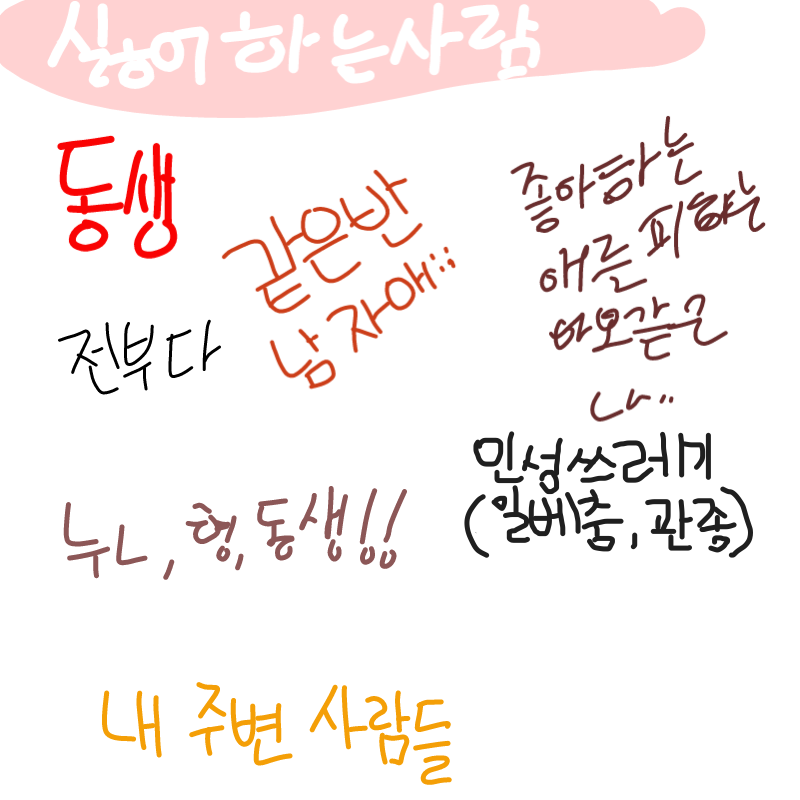 싫어하는사람
동생
같은반
남자애;;
좋아하는
애를 피하는
바보같은
나..
전부다
인성쓰레기
(일베충,관종)
누나,형,동생!!
내 주변 사람들